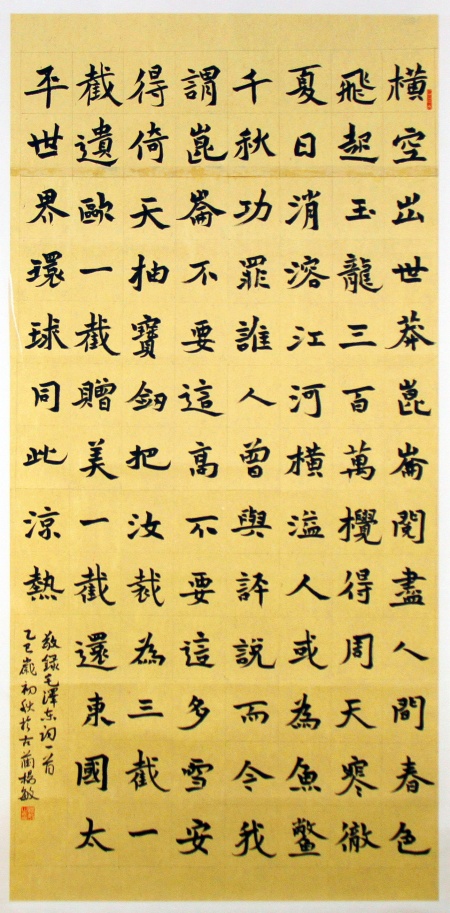 橫空出世莽崑崙閱盡人間春色
飛起玉龍三百萬攪得周天寒徹
夏日消溶江河橫溢人或為魚鱉
千秋功罪誰人曾與評說而今我
謂崑崙不要這高不要這多雪安
得倚天抽寶劍把汝裁為三截一
截遺歐一截贈美一截還東國太
平世界環球同此涼熱
敬錄毛澤东詞一首
乙巳歲初秋於古楊敏